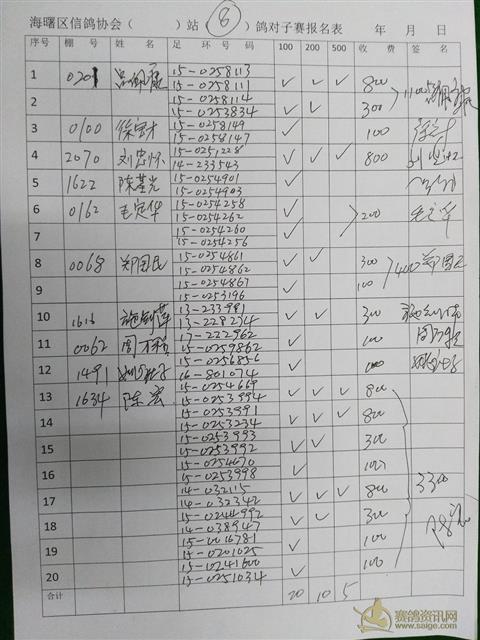 海曙区信鸽协会（ ）站（8）鸽对子赛报名表 年 月 日
序号 棚 号 姓 名 足 环 号 码 100 200 500 收 费 签 名
1 0201 15-0258113 ✓ ✓ ✓ 800
15-0258111
2 15-0258114 ✓ ✓ 300
15-0253834
3 0100 15-0258149 ✓ 100
15-0258147
4 2070 刘忠怀 15-0251228 ✓ ✓ ✓ 800
14-233543
5 1622 15-0254901 ✓
15-0254903
6 0162 毛定华 15-0254258 ✓ 200 毛定华
15-0254262
7 15-0254260 ✓
15-0254256
8 0068 郑国民 15-0254861 ✓ ✓ 300 400 郑国民
15-0254862
9 15-0254867 ✓ 100
15-0253196
10 1616 13-233981 ✓ ✓ 300
13-228274
11 0062 17-222962 ✓ 100
15-0259862
12 1491 15-0256856 ✓ 100
16-801074
13 1634 陈宏 15-0254669 ✓ ✓ ✓ 800
15-0253994
14 15-0253991 ✓ ✓ ✓ 800
15-0253234
15 15-0253993 ✓ ✓ 300
15-0253992
16 15-0254670 ✓ 100
15-0253998
17 14-032115 ✓ ✓ ✓ 800 3300
14-032342
18 15-0244992 ✓ ✓ 300
14-038947
19 15-0016781 ✓ 100
15-0201025
20 15-0241600 ✓ 100
15-0251034
合计 20 10 5
赛鸽资讯网
www.saige.com